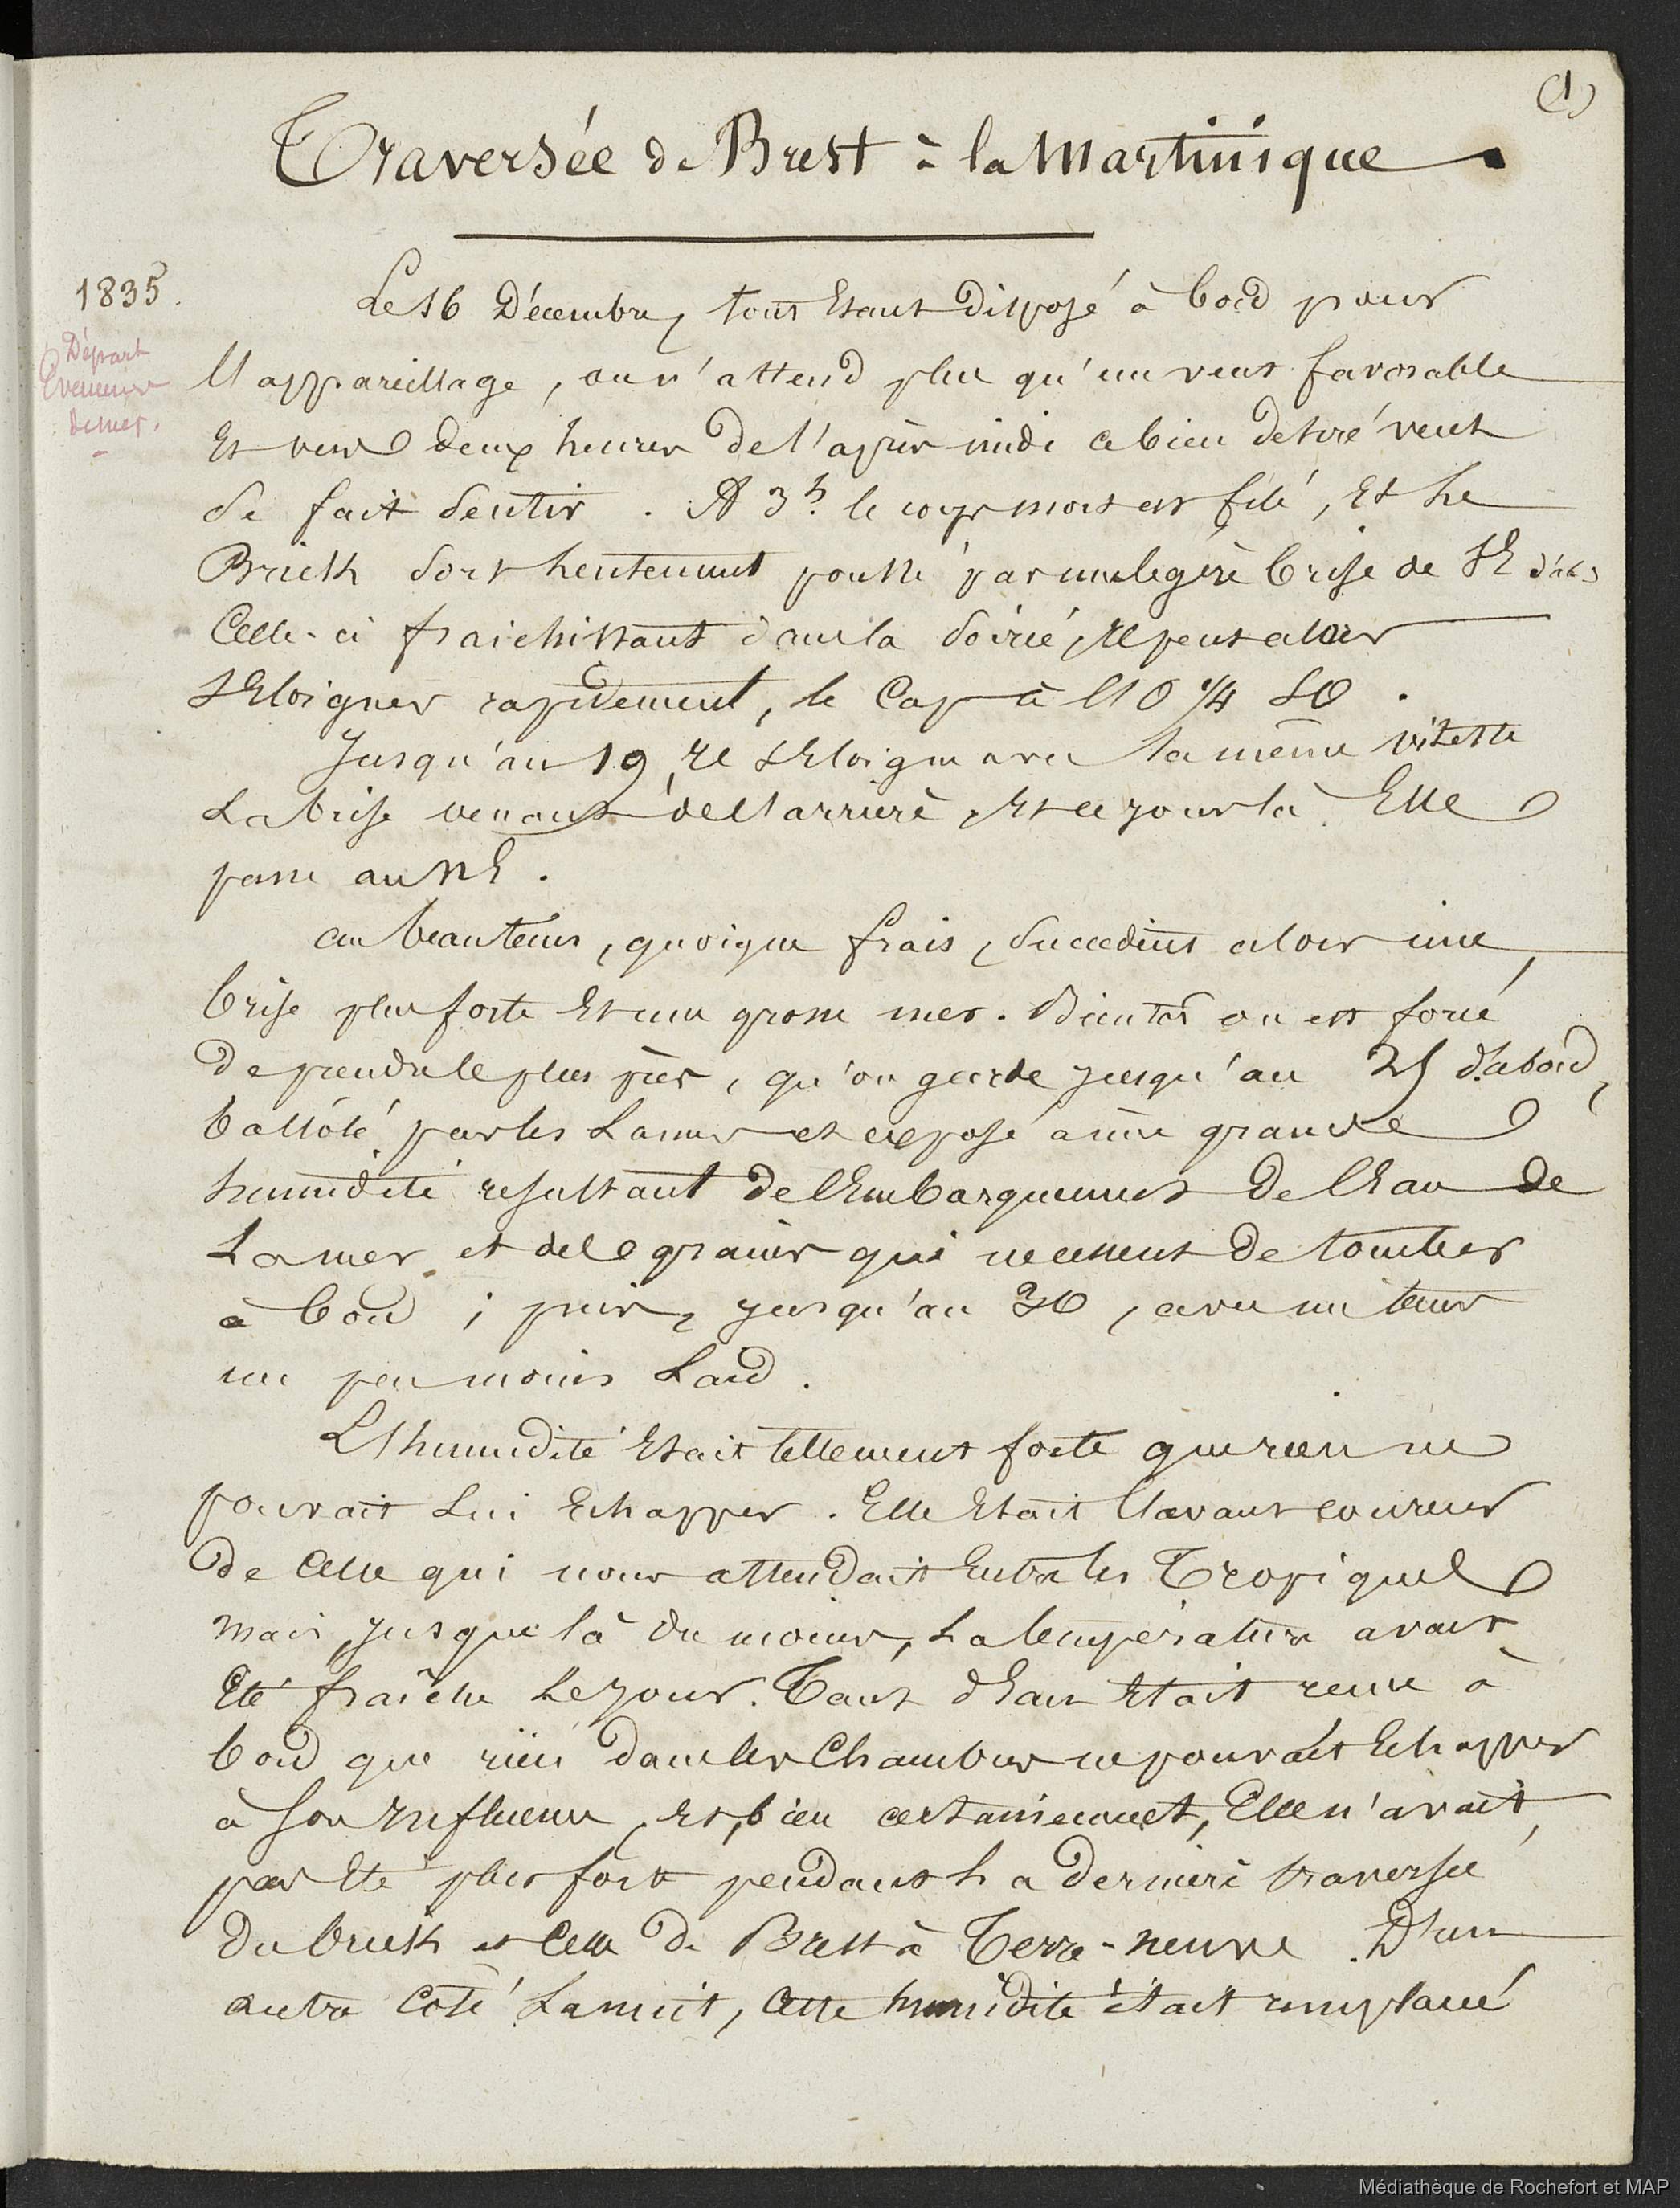 (1)
Traversée de Brest à la Martinique
1835.
Départ
Evenemens
de mer.
Le 16 Décembre, tout Etant disposé à bord pour
l'appareillage, on n'attend plus qu'un vent favorable
Et vers deux heures de l'après midi ce bien desiré vent
se fait sentir. A 3h. le corps mort est filé, Et le
Brick sort lentement poussé par une legère brise de SE
Celle-ci fraichissant dans la soirée, il peut alors
s'Eloigner rapidement, le Cap à l'O 1/4 SO.
Jusqu'au 19, il s'Eloigne avec la même vitesse
La brise venant de l'arrière, Et ce jour là Elle
passe au NE.
au beau tems, quoique frais, succedent alors une
brise plus forte Et une grosse mer. Bientôt on est forcé
de prendre le plus près, qu'on garde jusqu'au 25 d'abord,
ballôté par les Lames et exposé à une grande
humidité resultant de l'Embarquement de l'Eau de
La mer et des grains qui ne cessent de tomber
à bord ; puis, jusqu'au 30, avec un tems
un peu moins Laid.
L'humidité Etait tellement forte que rien ne
pouvait Lui Echapper. Elle Etait l'avant coureur
de Celle qui nous attendait Entre les Tropiques
mais, jusque là du moins, La température avait
Eté fraîche Le jour. Tant d'Eau Etait venue à
bord que rien dans les Chambres ne pouvait Echapper
à son influence, Et, bien certainement, Elle n'avait,
pas Eté plus forte pendant La dernière traversée
du brick et Celle de Brest à Terre-neuve. D'un
autre Coté La nuit, Cette humidité était remplacé
Médiathèque de Rochefort et MAP